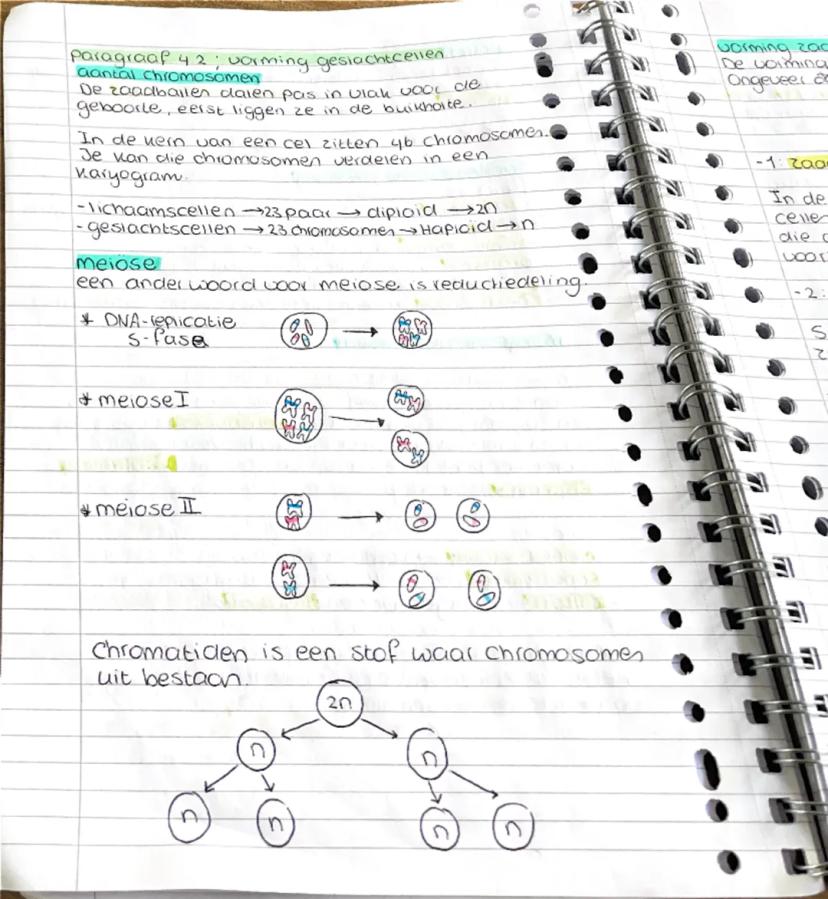 Paragraaf 4.2: vorming geslachtcellen
aantal chromosomen
De zaadballen dalen pas in vlak voor de
geboorte, eerst liggen ze in de buikholte.
In de kern van een cel zitten 46 chromosomen.
Je kan die chromosomen verdelen in een
karyogram.
- lichaamscellen → 23 paar → diploïd → 2n
- geslachtscellen → 23 chromosomen → Haploïd → n
meiose
een ander woord voor meiose is reductiedeling.
* DNA-replicatie
S-fase
* meiose I
* meiose II
Chromatiden is een stof waar chromosomen
uit bestaan.
2n
n n
n n n n
vorming
De vorming
Ongeveer
-1:
In de
celle
die
voor
-2:
S
z